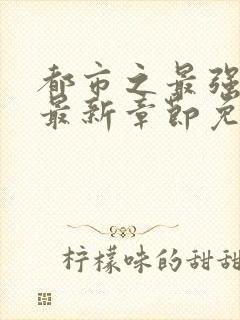 都市之最强
最新章節免
柠檬味的甜甜